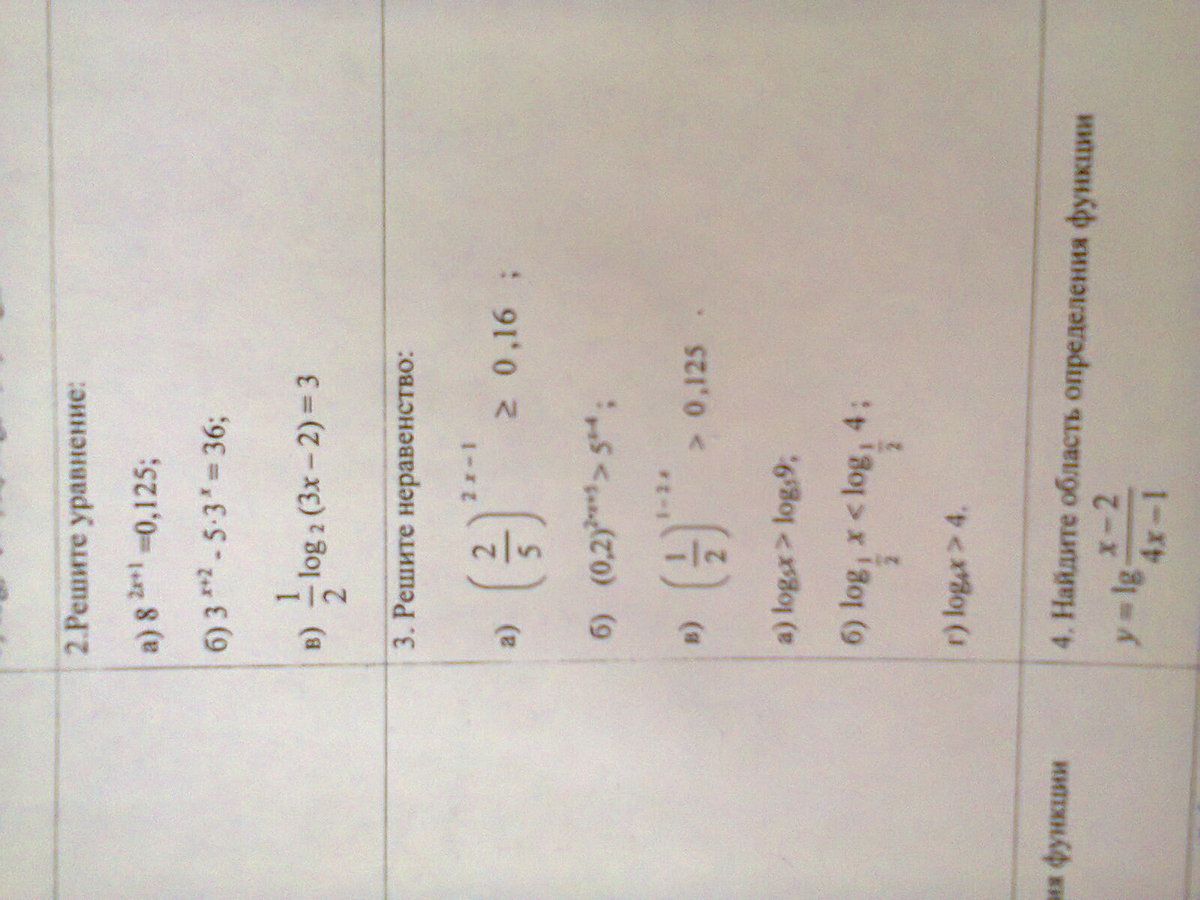 2.Решите уравнение:
а) 8 ²ˣ⁺¹ =0,125;
б) 3 ˣ⁺² - 5·3 ˣ = 36;
в) 1/2 log ₂ (3x – 2) = 3
3. Решите неравенство:
а) (2/5)²ˣ⁻¹ ≥ 0,16 ;
б) (0,2) > 5ˣ⁻⁴ ;
в) (1/2)¹⁻²ˣ > 0,125 .
а) log₅x > log₅9;
б) log 1/2 x < log 1/2 4 ;
г) log₄x > 4.
4. Найдите область определения функции
y = lg (x – 2)/(4x – 1)
функции